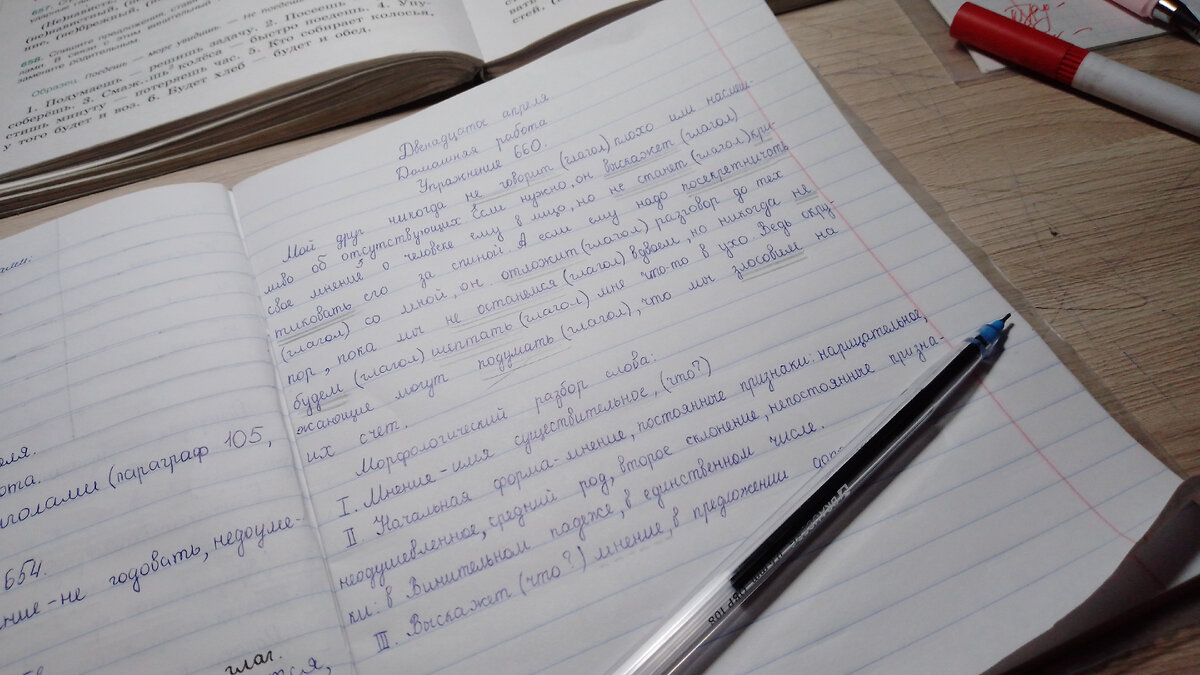 657. Сп
(Не)навист
(не)навистный, (не
ние, (не)брежный, (не
658. Спишите предложения, ставя
лами. В связи с этим
замените родительным.
Образец. Поедешь — море увидишь. — не поедешь
1. Подумаешь — решишь задачу. 2. Посеешь
соберёшь. 3. Смаж..шь колёса — быстро поедешь. 4. Упу-
стишь минуту — потеряешь час. 5. Кто собирает колосья,
у того будет и воз. 6. Будет хлеб — будет и обед.
еля.
ота.
голами (параграф 105,
654.
ние-не годовать, недоуме-
глаг.
Двенадцатое апреля.
Домашняя работа
Упражнение 660.
Мой друг никогда не говорит (глагол) плохо или насмеш-
ливо об отсутствующих. Если нужно, он выскажет (глагол)
свое мнение3 о человеке ему в лицо, но не станет (глагол) кри-
тиковать его за спиной. А если ему надо посекретничать
(глагол) со мной, он отложит (глагол) разговор до тех
пор, пока мы не останемся (глагол) вдвоем, но никогда не
будем (глагол) шептать (глагол) мне что-то в ухо. Ведь окру-
жающие могут подумать (глагол), что мы злословим на
их счет.
Морфологический разбор слова:
I. Мнение-имя существительное, (что?)
II Начальная форма-мнение, постоянные признаки: нарицательное,
неодушевленное, средний род, второе склонение, непостоянные призна-
ки: в Винительном падеже, в единственном числе.
III. Выскажет (что?) мнение, в предложении доп